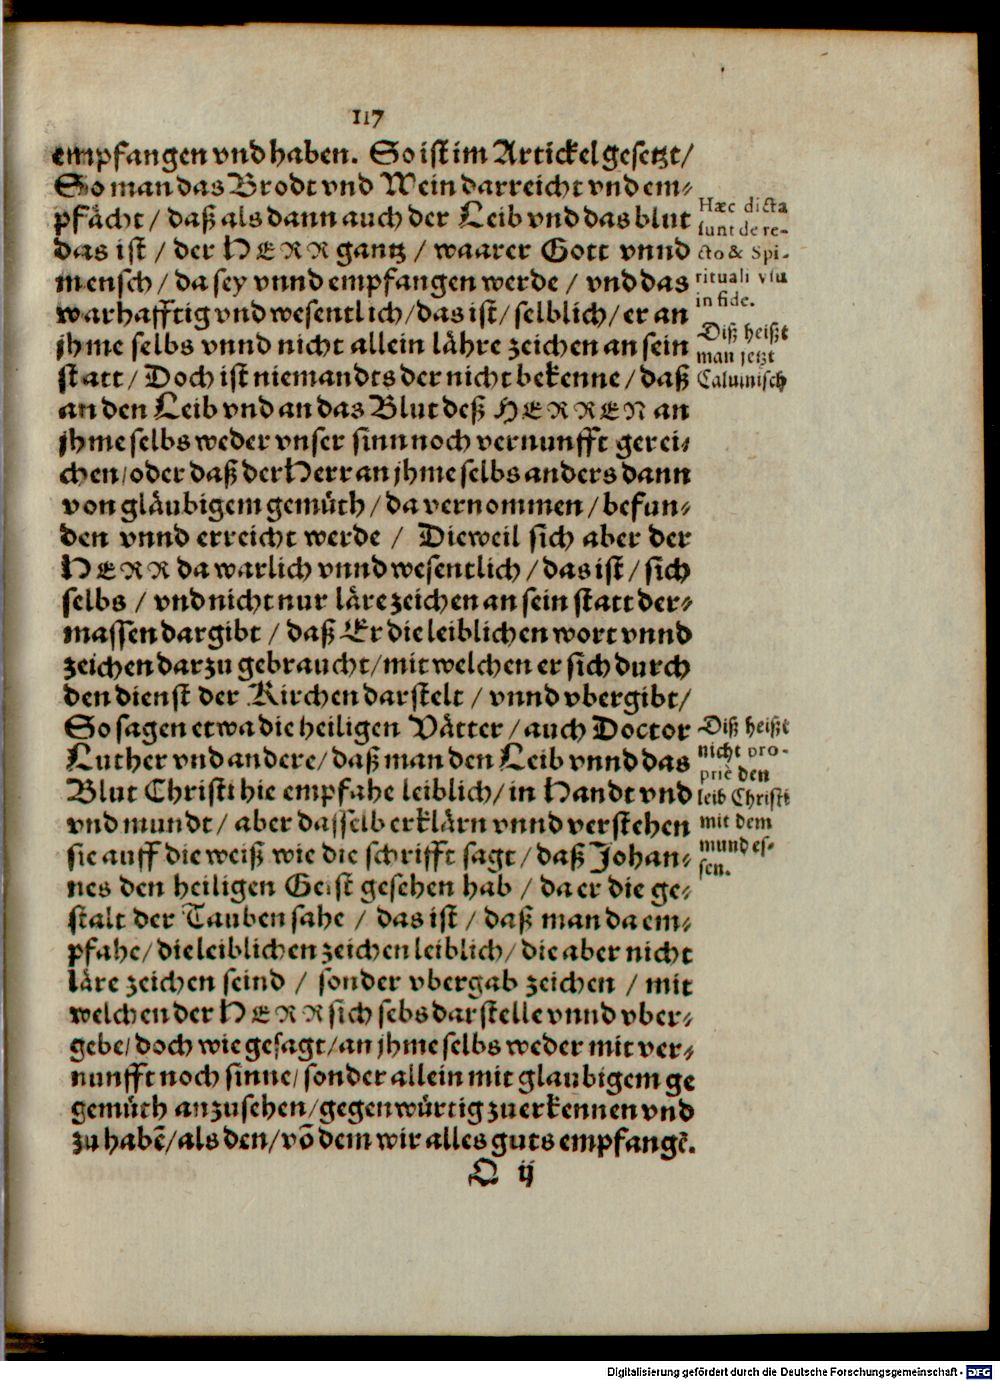 117
empfangen vnd haben. So ist im Artickel gesetzt/
So man das Brodt vnd Wein darreicht vnd em-
pfächt/ daß als dann auch der Leib vnd das blut
das ist/ der HERR gantz/ waarer Gott vnnd
mensch/ da sey vnnd empfangen werde/ vnd das
warhafftig vnd wesentlich/ das ist/ selblich/ er an
jhme selbs vnnd nicht allein lähre zeichen an sein
statt/ Doch ist niemandts der nicht bekenne/ daß
an den Leib vnd an das Blut deß HERREN an
jhme selbs weder vnser sinn noch vernunfft gerei-
chen/ oder daß der Herr an jhme selbs anders dann
von gläubigem gemüth/ da vernommen/ befun-
den vnnd erreicht werde/ Dieweil sich aber der
HERR da warlich vnnd wesentlich/ das ist/ sich
selbs/ vnd nicht nur läre zeichen an sein statt der-
massen dargibt/ daß Er die leiblichen wort vnnd
zeichen darzu gebraucht/ mit welchen er sich durch
den dienst der Kirchen darstelt/ vnnd vbergibt/
So sagen etwa die heiligen Vätter/ auch Doctor
Luther vnd andere/ daß man den Leib vnnd das
Blut Christi hie empfahe leiblich/ in Handt vnd
vnd mundt/ aber dasselb erklärn vnnd verstehen
sie auff die weiß wie die schrifft sagt/ daß Johan-
nes den heiligen Geist gesehen hab/ da er die ge-
stalt der Tauben sahe/ das ist/ daß man da em-
pfahe/ die leiblichen zeichen leiblich/ die aber nicht
läre zeichen seind/ sonder vbergab zeichen/ mit
welchen der HERR sich sebs darstelle vnnd vber-
gebe/ doch wie gesagt/ an jhme selbs weder mit ver-
nunfft noch sinne/ sonder allein mit glaubigem ge
gemüth anzusehen/ gegenwürtig zuerkennen vnd
zu habē/ als den/ vō dem wir alles guts empfangē.
Q ij
Hæc dicta
sunt de re-
cto & Spi-
rituali vsu
in fide.
Diß heißt
man jetzt
Caluinisch
Diß heißt
nicht pro-
priè den
leib Christi
mit dem
mund es-
sen.
Digitalisierung gefördert durch die Deutsche Forschungsgemeinschaft - DFG